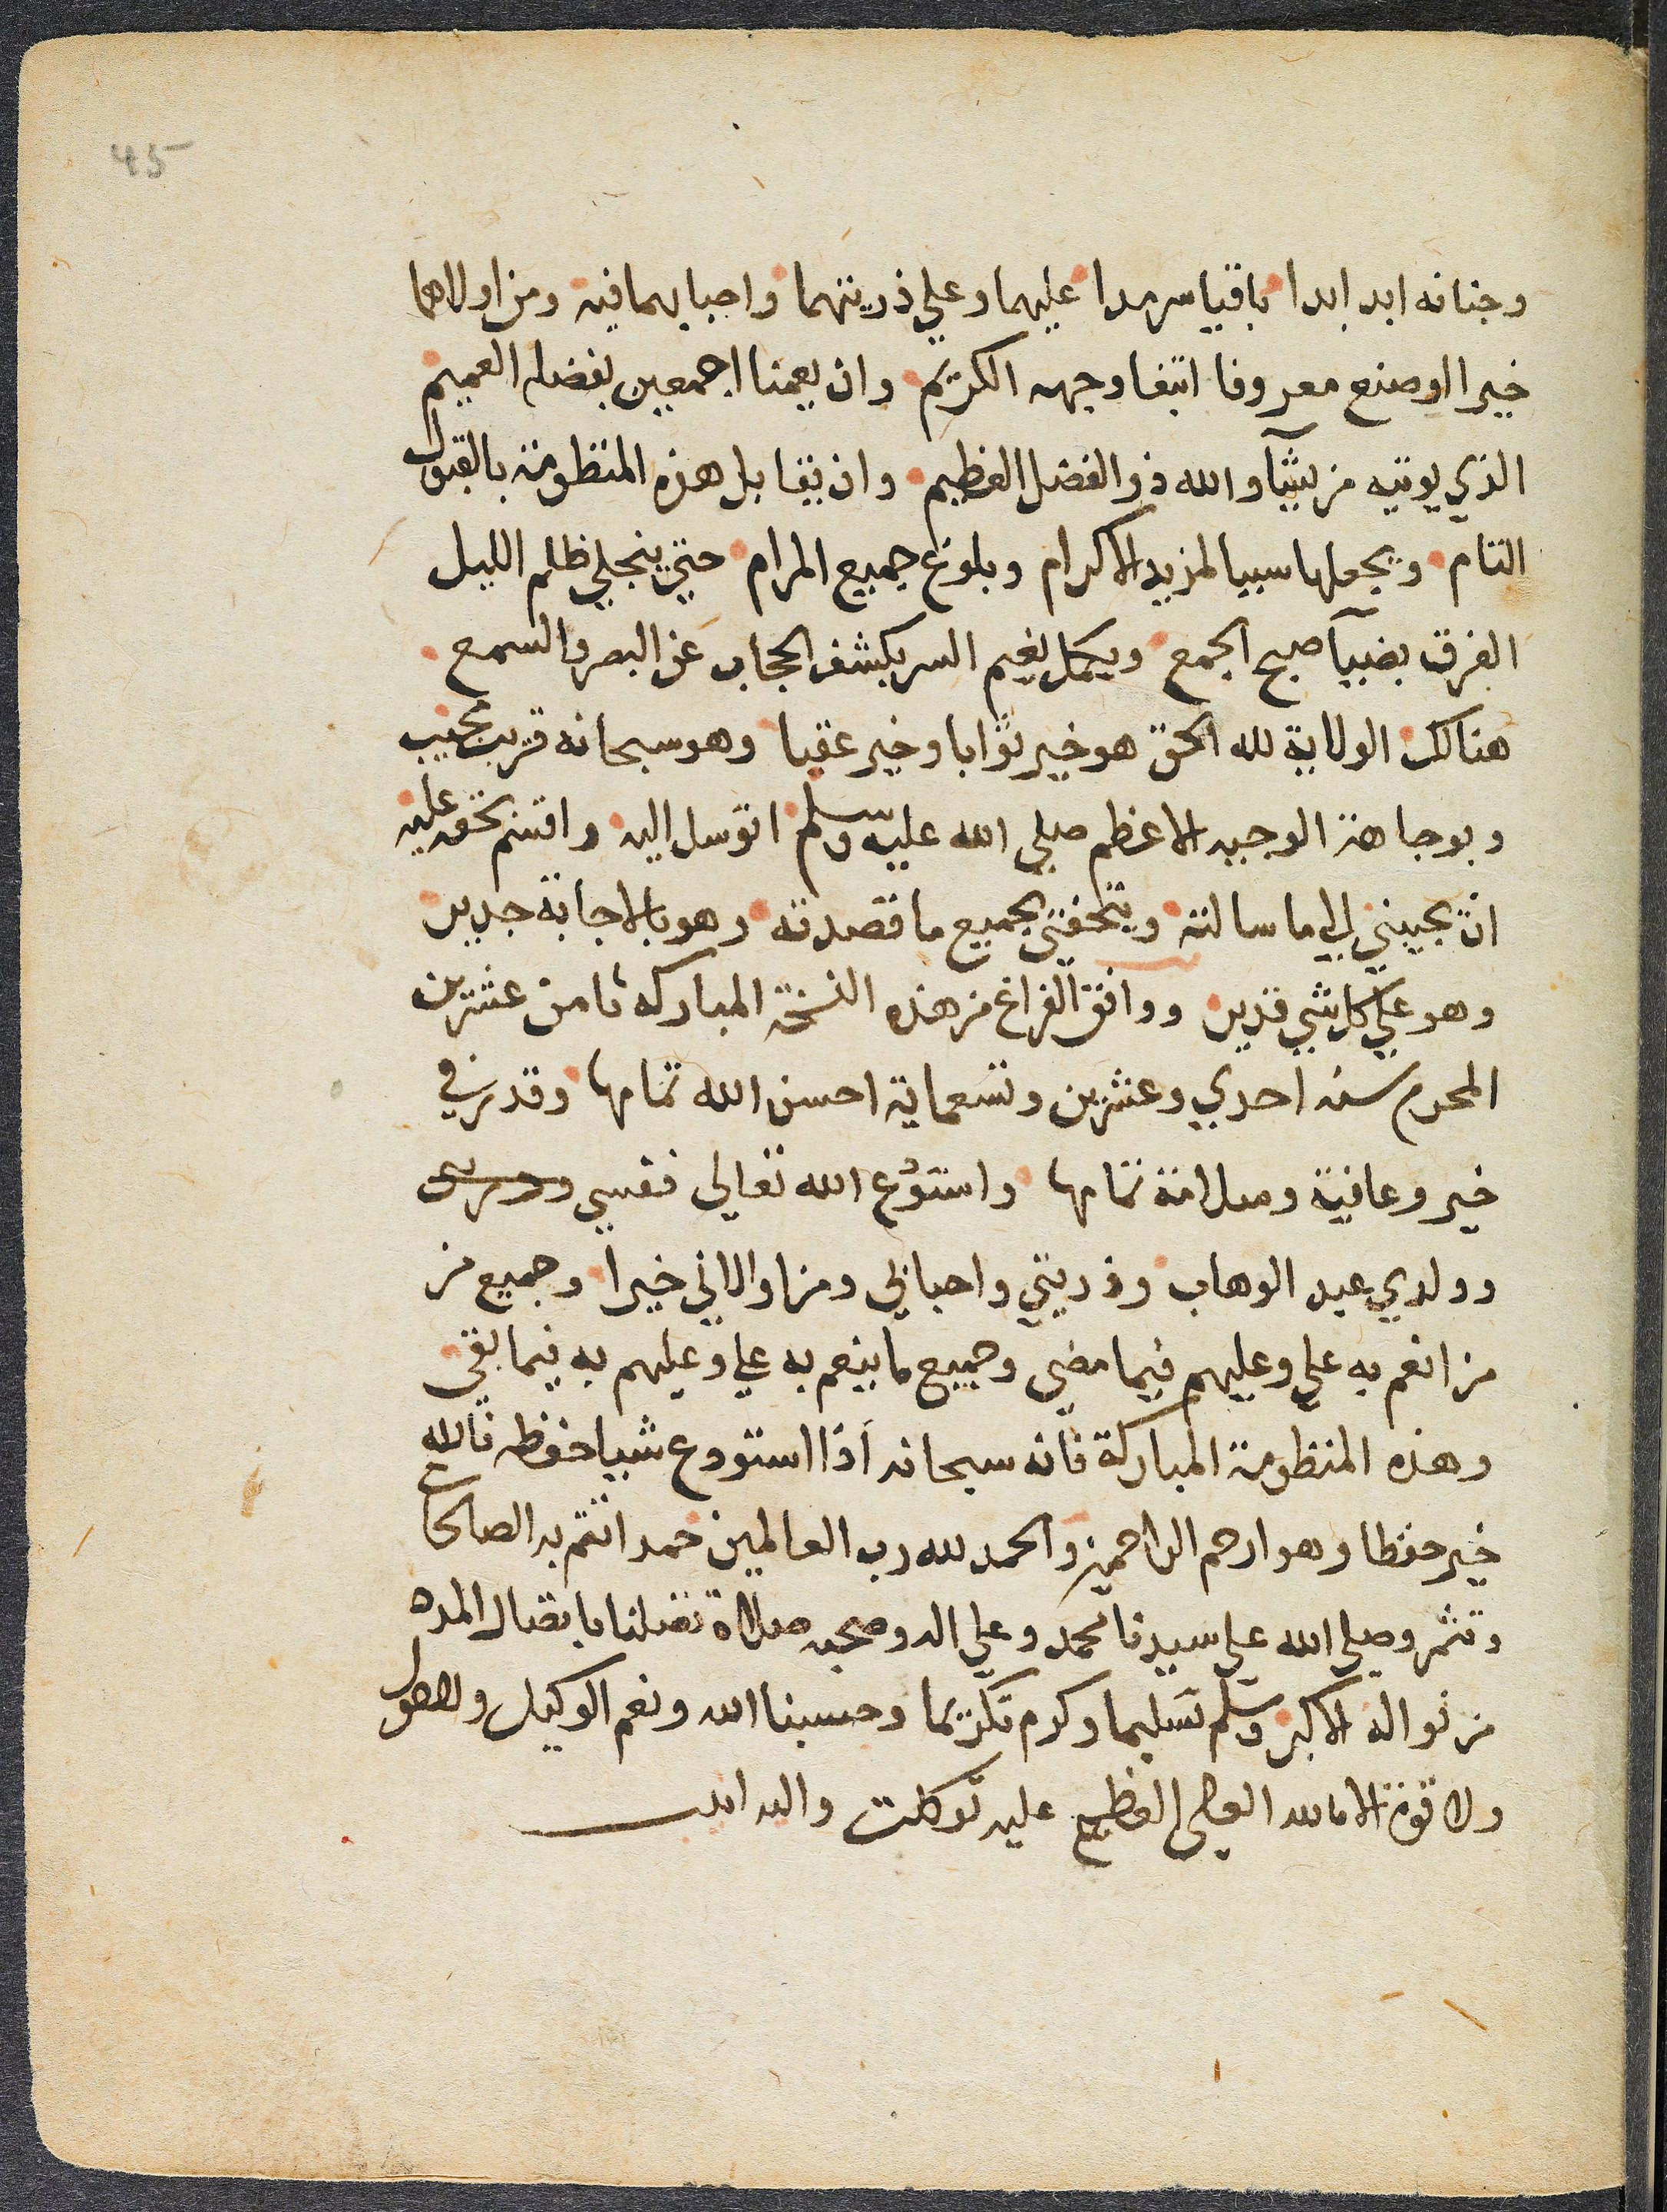 45
وجنانه ابد ابدا باقيا سرمدا عليهما وعلي ذريتهما واحبابهما فيه ومن اولاهما
خيرا اوصنع معروفا ابتغا وجهه الكريم وان يعمنا اجمعين بفضله العميم
الذي يوتيه من يشآ والله ذو الفضل العظيم وان يقابل هذه المنظومة بالقبول
التام ويجعلها سببا لمزيد الاكرام وبلوغ جميع المرام حتي ينجلي ظلم الليل
الفرق بضيآ صبح الجمع ويكمل نعيم السر بكشف الحجاب عن البصر والسمع
هنالك الولاية لله الحق هو خير ثوابا وخير عقبا وهو سبحانه قريب مجيب
وبوجاهة الوجيه الاعظم صلي الله عليه وسلم اتوسل اليه واقسم بحقه عليه
ان يجيبني الي ما سالته ويتحفني بجميع ما قصدته وهو بالاجابة جدير
وهو علي كل شي قدير ووافق الفراغ من هذه النسخة المباركه ثامن عشرين
المحرم سنه احدي وعشرين وتسعماية احسن الله تمامها وقدر في
خير وعافية وسلامة تمامها واستودع الله تعالي نفسي
وولدي عبد الوهاب وذريتي واحبابي ومن اوالاني خيرا وجميع من
من انعم به علي وعليهم فيما مضي وجميع ما ينعم به علي وعليهم به فيما بقي
وهذه المنظومة المباركة فانه سبحانه اذا استودع شييا حفظه فالله
خير حفظا وهو ارحم الراحمين والحمد لله رب العالمين حمدا تتم به الصالحات
وتثمر وصلي الله علي سيدنا محمد وعلي اله وصحبه صلاة تصلنا باتصال المدد
من نواله الاكبر وسلم تسليما وكرم تكريما وحسبنا الله ونعم الوكيل ولا حول
ولا قوة الا بالله العلي العظيم عليه توكلت واليه انيب